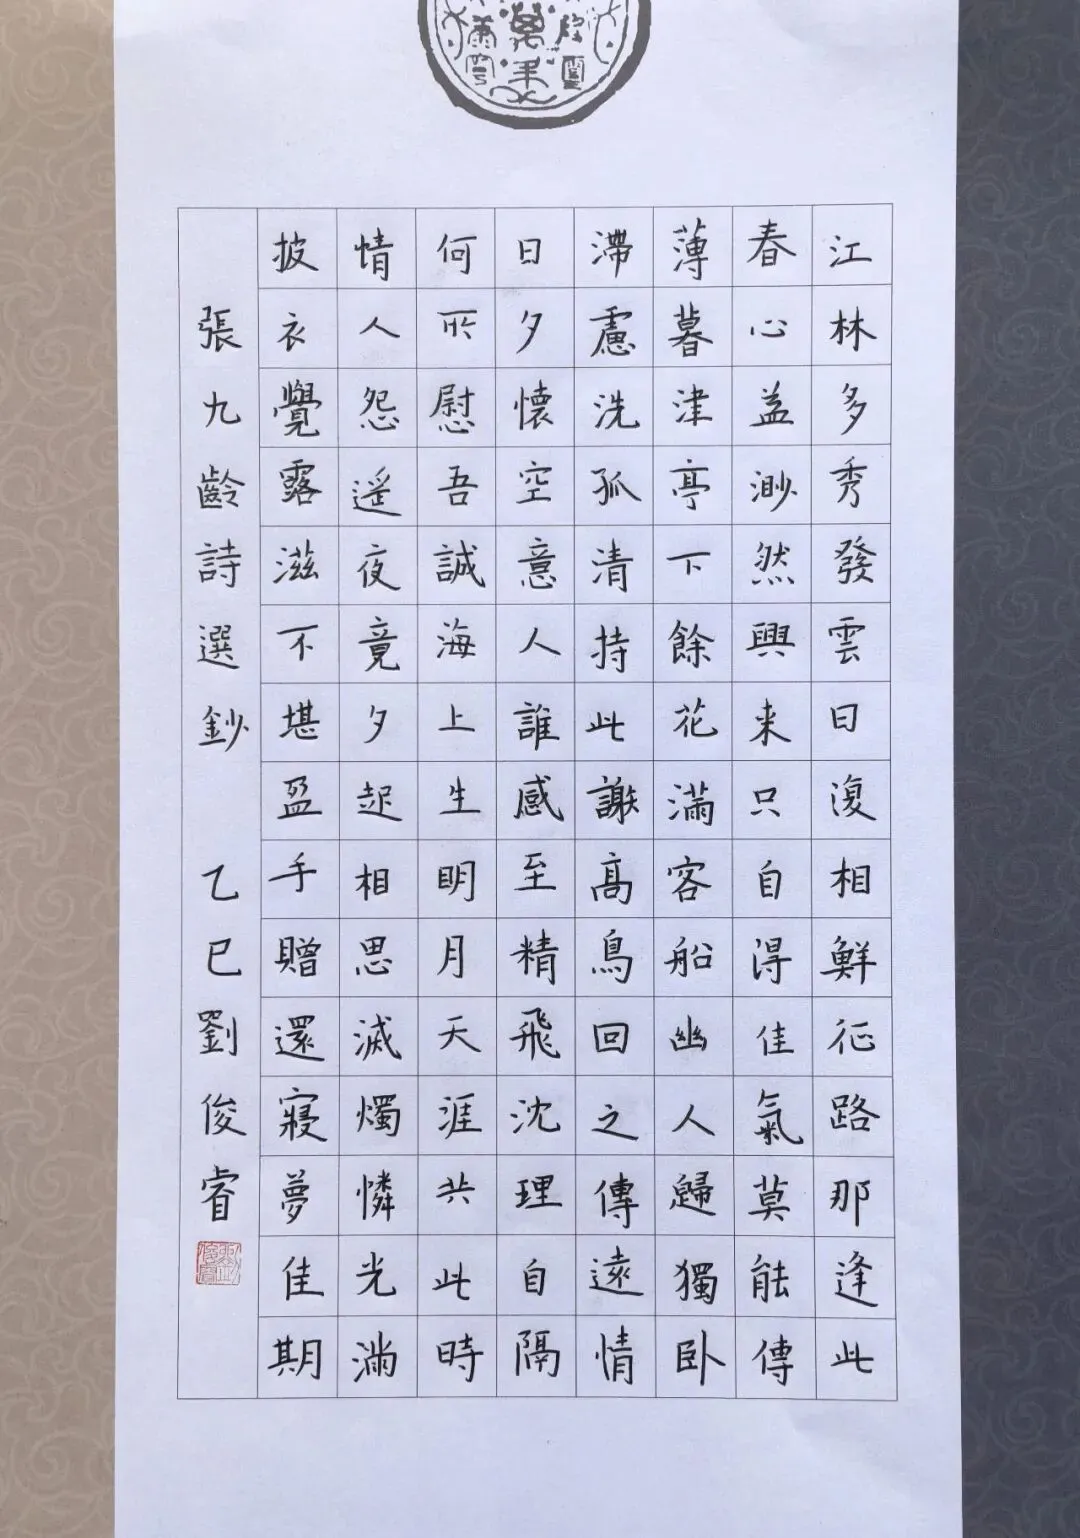 江林多秀發雲日復相鮮征路那逢此
春心益渺然興来只自得佳氣莫能傳
薄暮津亭下餘花滿客船幽人歸獨卧
滯慮洗孤清持此謝髙鳥回之傳遠情
日夕懷空意人誰感至精飛沈理自隔
何所慰吾誠海上生明月天涯共此時
情人怨遥夜竟夕起相思滅燭憐光滿
披衣覺露滋不堪盈手贈還寢夢佳期
張九齡詩選鈔 乙巳劉俊睿